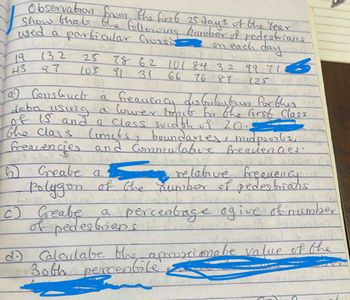 Observation from the first 25 days of the Year
show that the following number of pedestrians
used a particular Cross on each day
19 132 25 78 62 101 84 32 99 71
43 97 105 91 31 66 76 87 125
a) Construct a frequency distribution for this
data using a lower limit for the first class
of 15 and a class width of 20.
the class limits, boundaries, midpoints,
frequencies and Commulative frequencies.
b) Create a relative frequency
Polygon of the number of pedestrians
c) Create a percentage ogive of number
of pedestrians
d) Calculate the approximate value of the
30th percentile